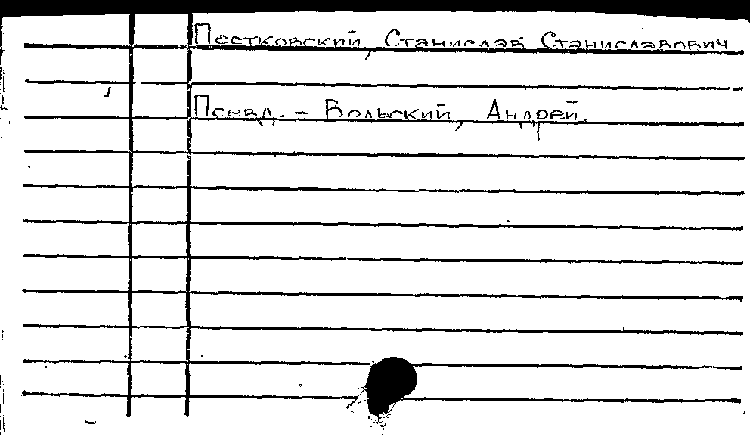 Пестковский, Станислав Станиславович
Псевд. - Вольский, Андрей.